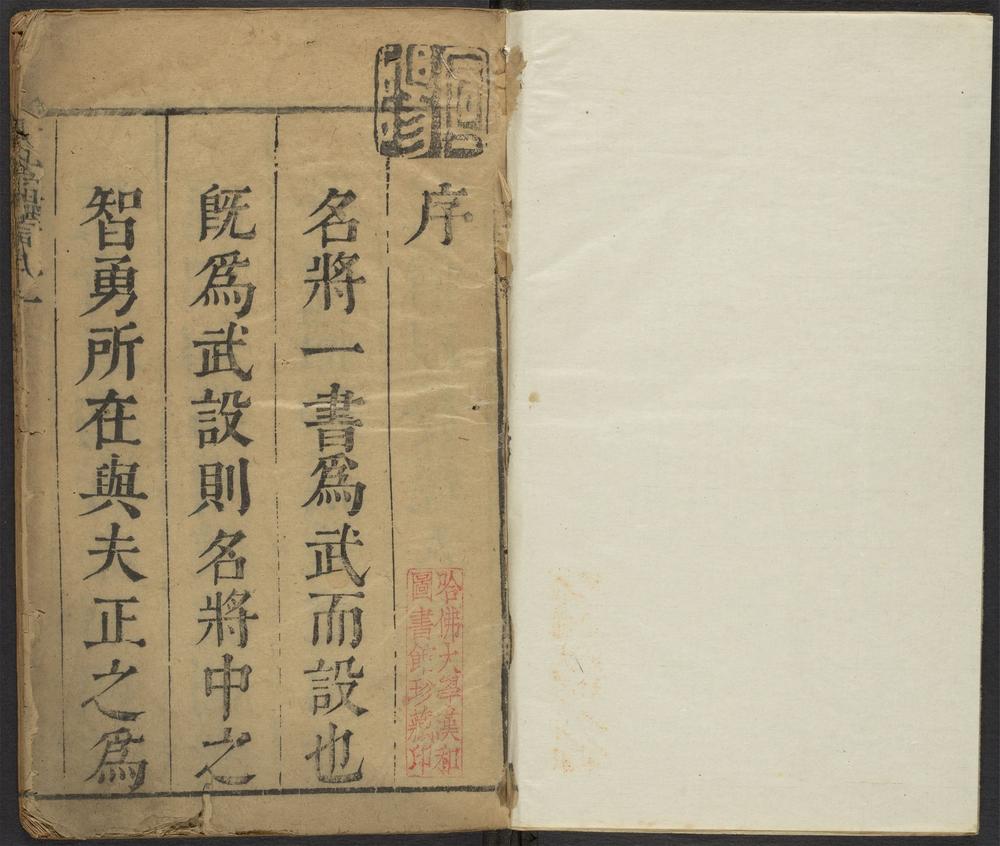 序
名將一書爲武而設也
旣爲武設則名將中之
智勇所在與夫正之爲
哈佛大學漢和
圖書館珍藏印